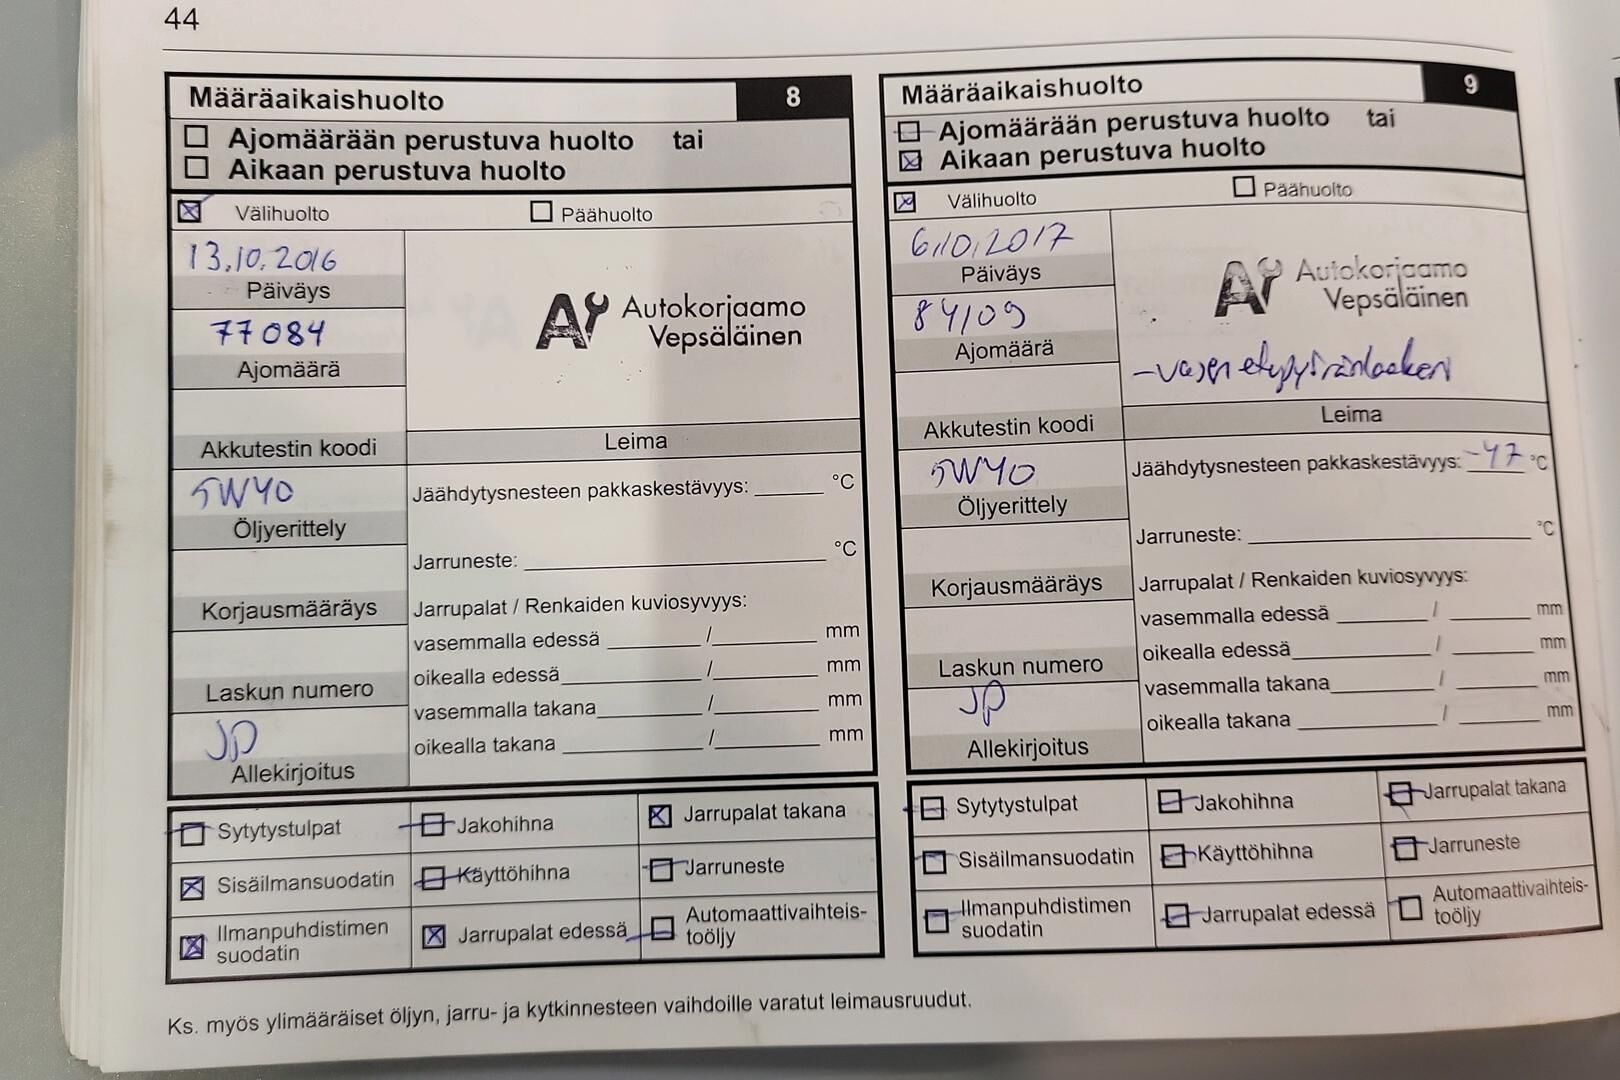 44
Määräaikaishuolto 8
Ajomäärään perustuva huolto tai
Aikaan perustuva huolto
Välihuolto Päähuolto
13.10.2016
Päiväys
77084
Ajomäärä
Autokorjaamo
Vepsäläinen
Akkutestin koodi
Leima
5W40
Öljyerittely
Jäähdytysnesteen pakkaskestävyys: ______ °C
Jarruneste: ______ °C
Korjausmääräys
Jarrupalat / Renkaiden kuviosyvyys:
vasemmalla edessä ______/______ mm
oikealla edessä ______/______ mm
Laskun numero
vasemmalla takana ______/______ mm
oikealla takana ______/______ mm
JP
Allekirjoitus
Sytytystulpat Jakohihna Jarrupalat takana
Sisäilmansuodatin Käyttöhihna Jarruneste
Ilmanpuhdistimen
suodatin
Jarrupalat edessä
Automaattivaihteis-
toöljy
Määräaikaishuolto 9
Ajomäärään perustuva huolto tai
Aikaan perustuva huolto
Välihuolto Päähuolto
6.10.2017
Päiväys
84109
Ajomäärä
Autokorjaamo
Vepsäläinen
-vasen etupyöränlaakeri
Akkutestin koodi
Leima
5W40
Öljyerittely
Jäähdytysnesteen pakkaskestävyys: -47 °C
Jarruneste: ______ °C
Korjausmääräys
Jarrupalat / Renkaiden kuviosyvyys:
vasemmalla edessä ______/______ mm
oikealla edessä ______/______ mm
Laskun numero
vasemmalla takana ______/______ mm
oikealla takana ______/______ mm
JP
Allekirjoitus
Sytytystulpat Jakohihna Jarrupalat takana
Sisäilmansuodatin Käyttöhihna Jarruneste
Ilmanpuhdistimen
suodatin
Jarrupalat edessä
Automaattivaihteis-
toöljy
Ks. myös ylimääräiset öljyn, jarru- ja kytkinnesteen vaihdoille varatut leimausruudut.